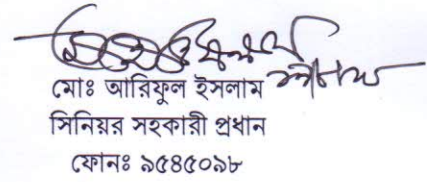 মোঃ আরিফুল ইসলাম
সিনিয়র সহকারী প্রধান
ফোনঃ ৯৫৪৫০৯৮